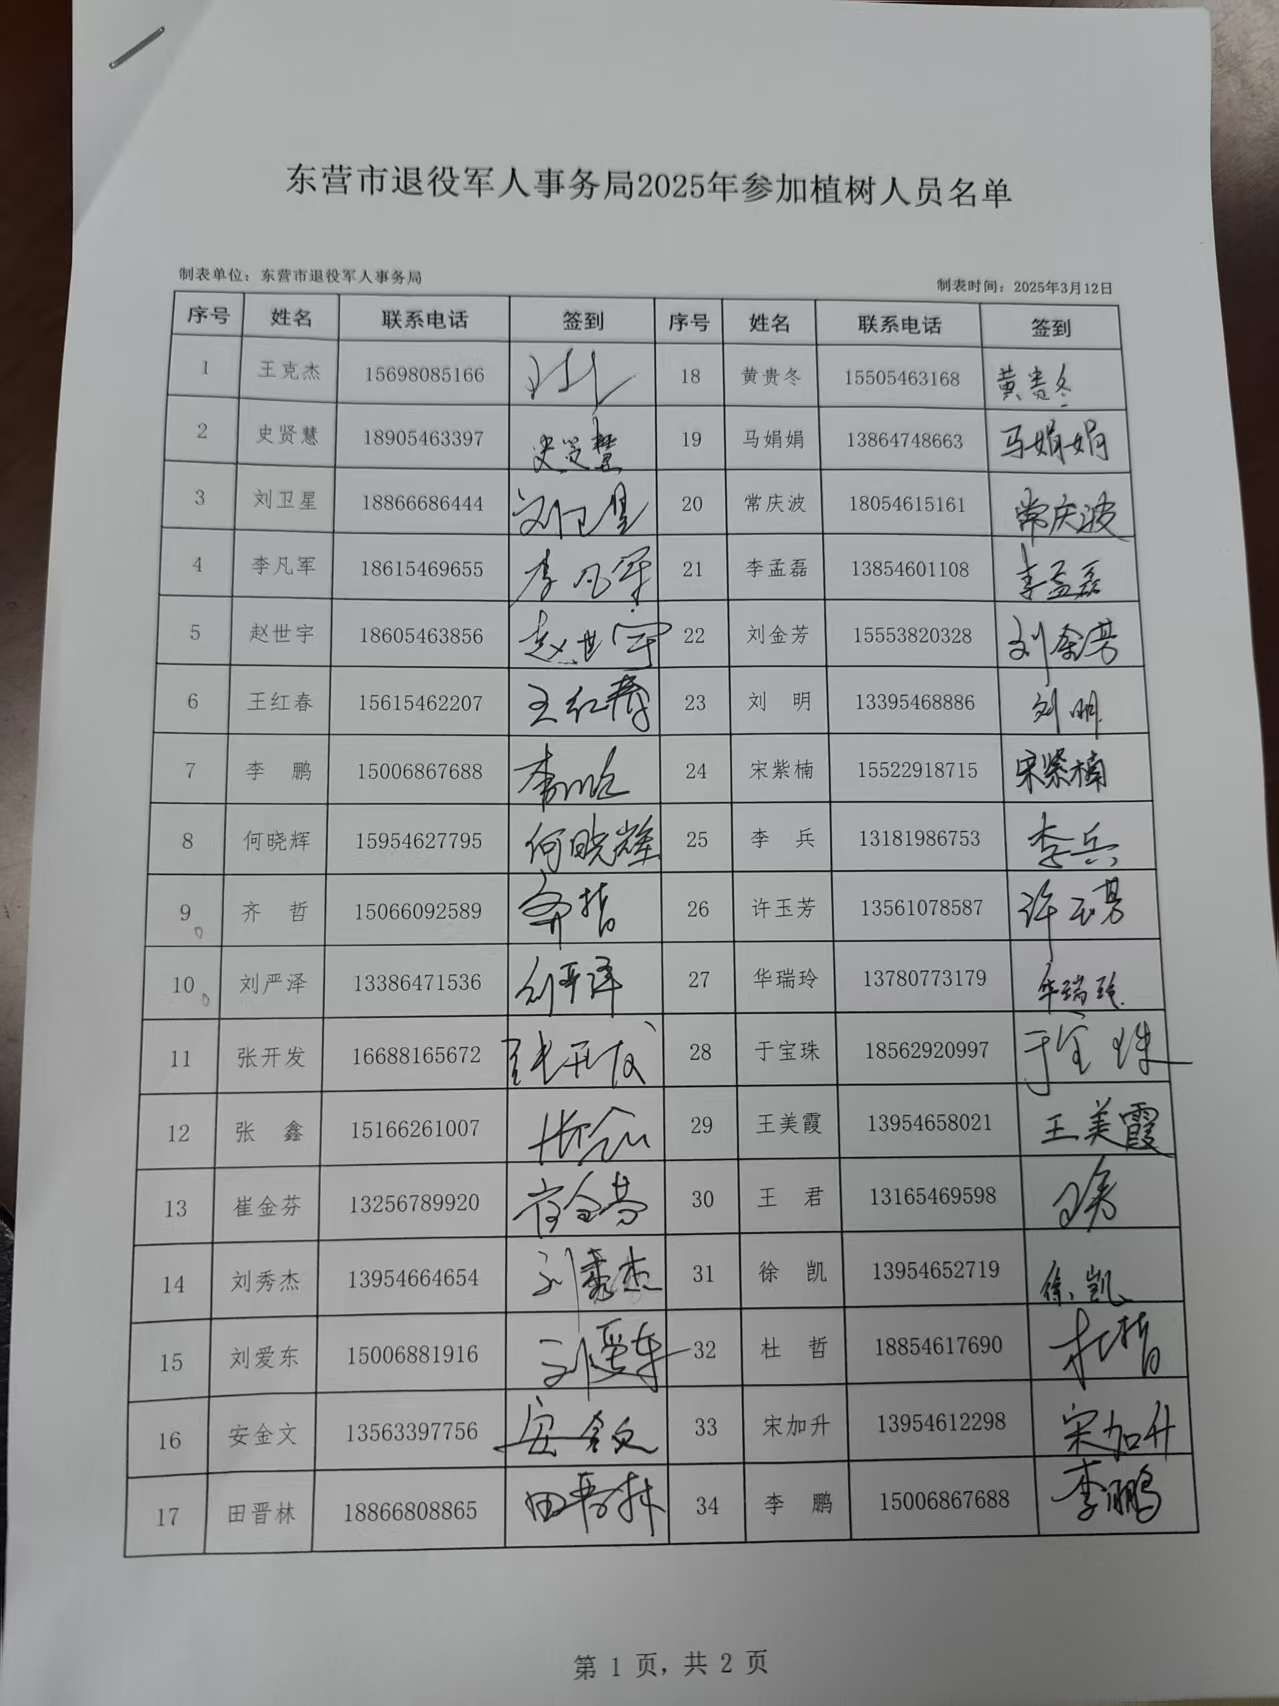 东营市退役军人事务局2025年参加植树人员名单
制表单位：东营市退役军人事务局 制表时间：2025年3月12日
序号 姓名 联系电话 签到 序号 姓名 联系电话 签到
1 王克杰 15698085166 18 黄贵冬 15505463168 黄贵冬
2 史贤慧 18905463397 史贤慧 19 马娟娟 13864748663 马娟娟
3 刘卫星 18866686444 刘卫星 20 常庆波 18054615161 常庆波
4 李凡军 18615469655 李凡军 21 李孟磊 13854601108 李孟磊
5 赵世宇 18605463856 赵世宇 22 刘金芳 15553820328 刘金芳
6 王红春 15615462207 王红春 23 刘 明 13395468886 刘明
7 李 鹏 15006867688 24 宋紫楠 15522918715 宋紫楠
8 何晓辉 15954627795 何晓辉 25 李 兵 13181986753 李兵
9 齐 哲 15066092589 齐哲 26 许玉芳 13561078587 许玉芳
10 刘严泽 13386471536 刘严泽 27 华瑞玲 13780773179 华瑞玲
11 张开发 16688165672 张开发 28 于宝珠 18562920997 于宝珠
12 张 鑫 15166261007 张鑫 29 王美霞 13954658021 王美霞
13 崔金芬 13256789920 崔金芬 30 王 君 13165469598 王君
14 刘秀杰 13954664654 刘秀杰 31 徐 凯 13954652719 徐凯
15 刘爱东 15006881916 刘爱东 32 杜 哲 18854617690 杜哲
16 安金文 13563397756 安金文 33 宋加升 13954612298 宋加升
17 田晋林 18866808865 田晋林 34 李 鹏 15006867688 李鹏
第 1 页，共 2 页